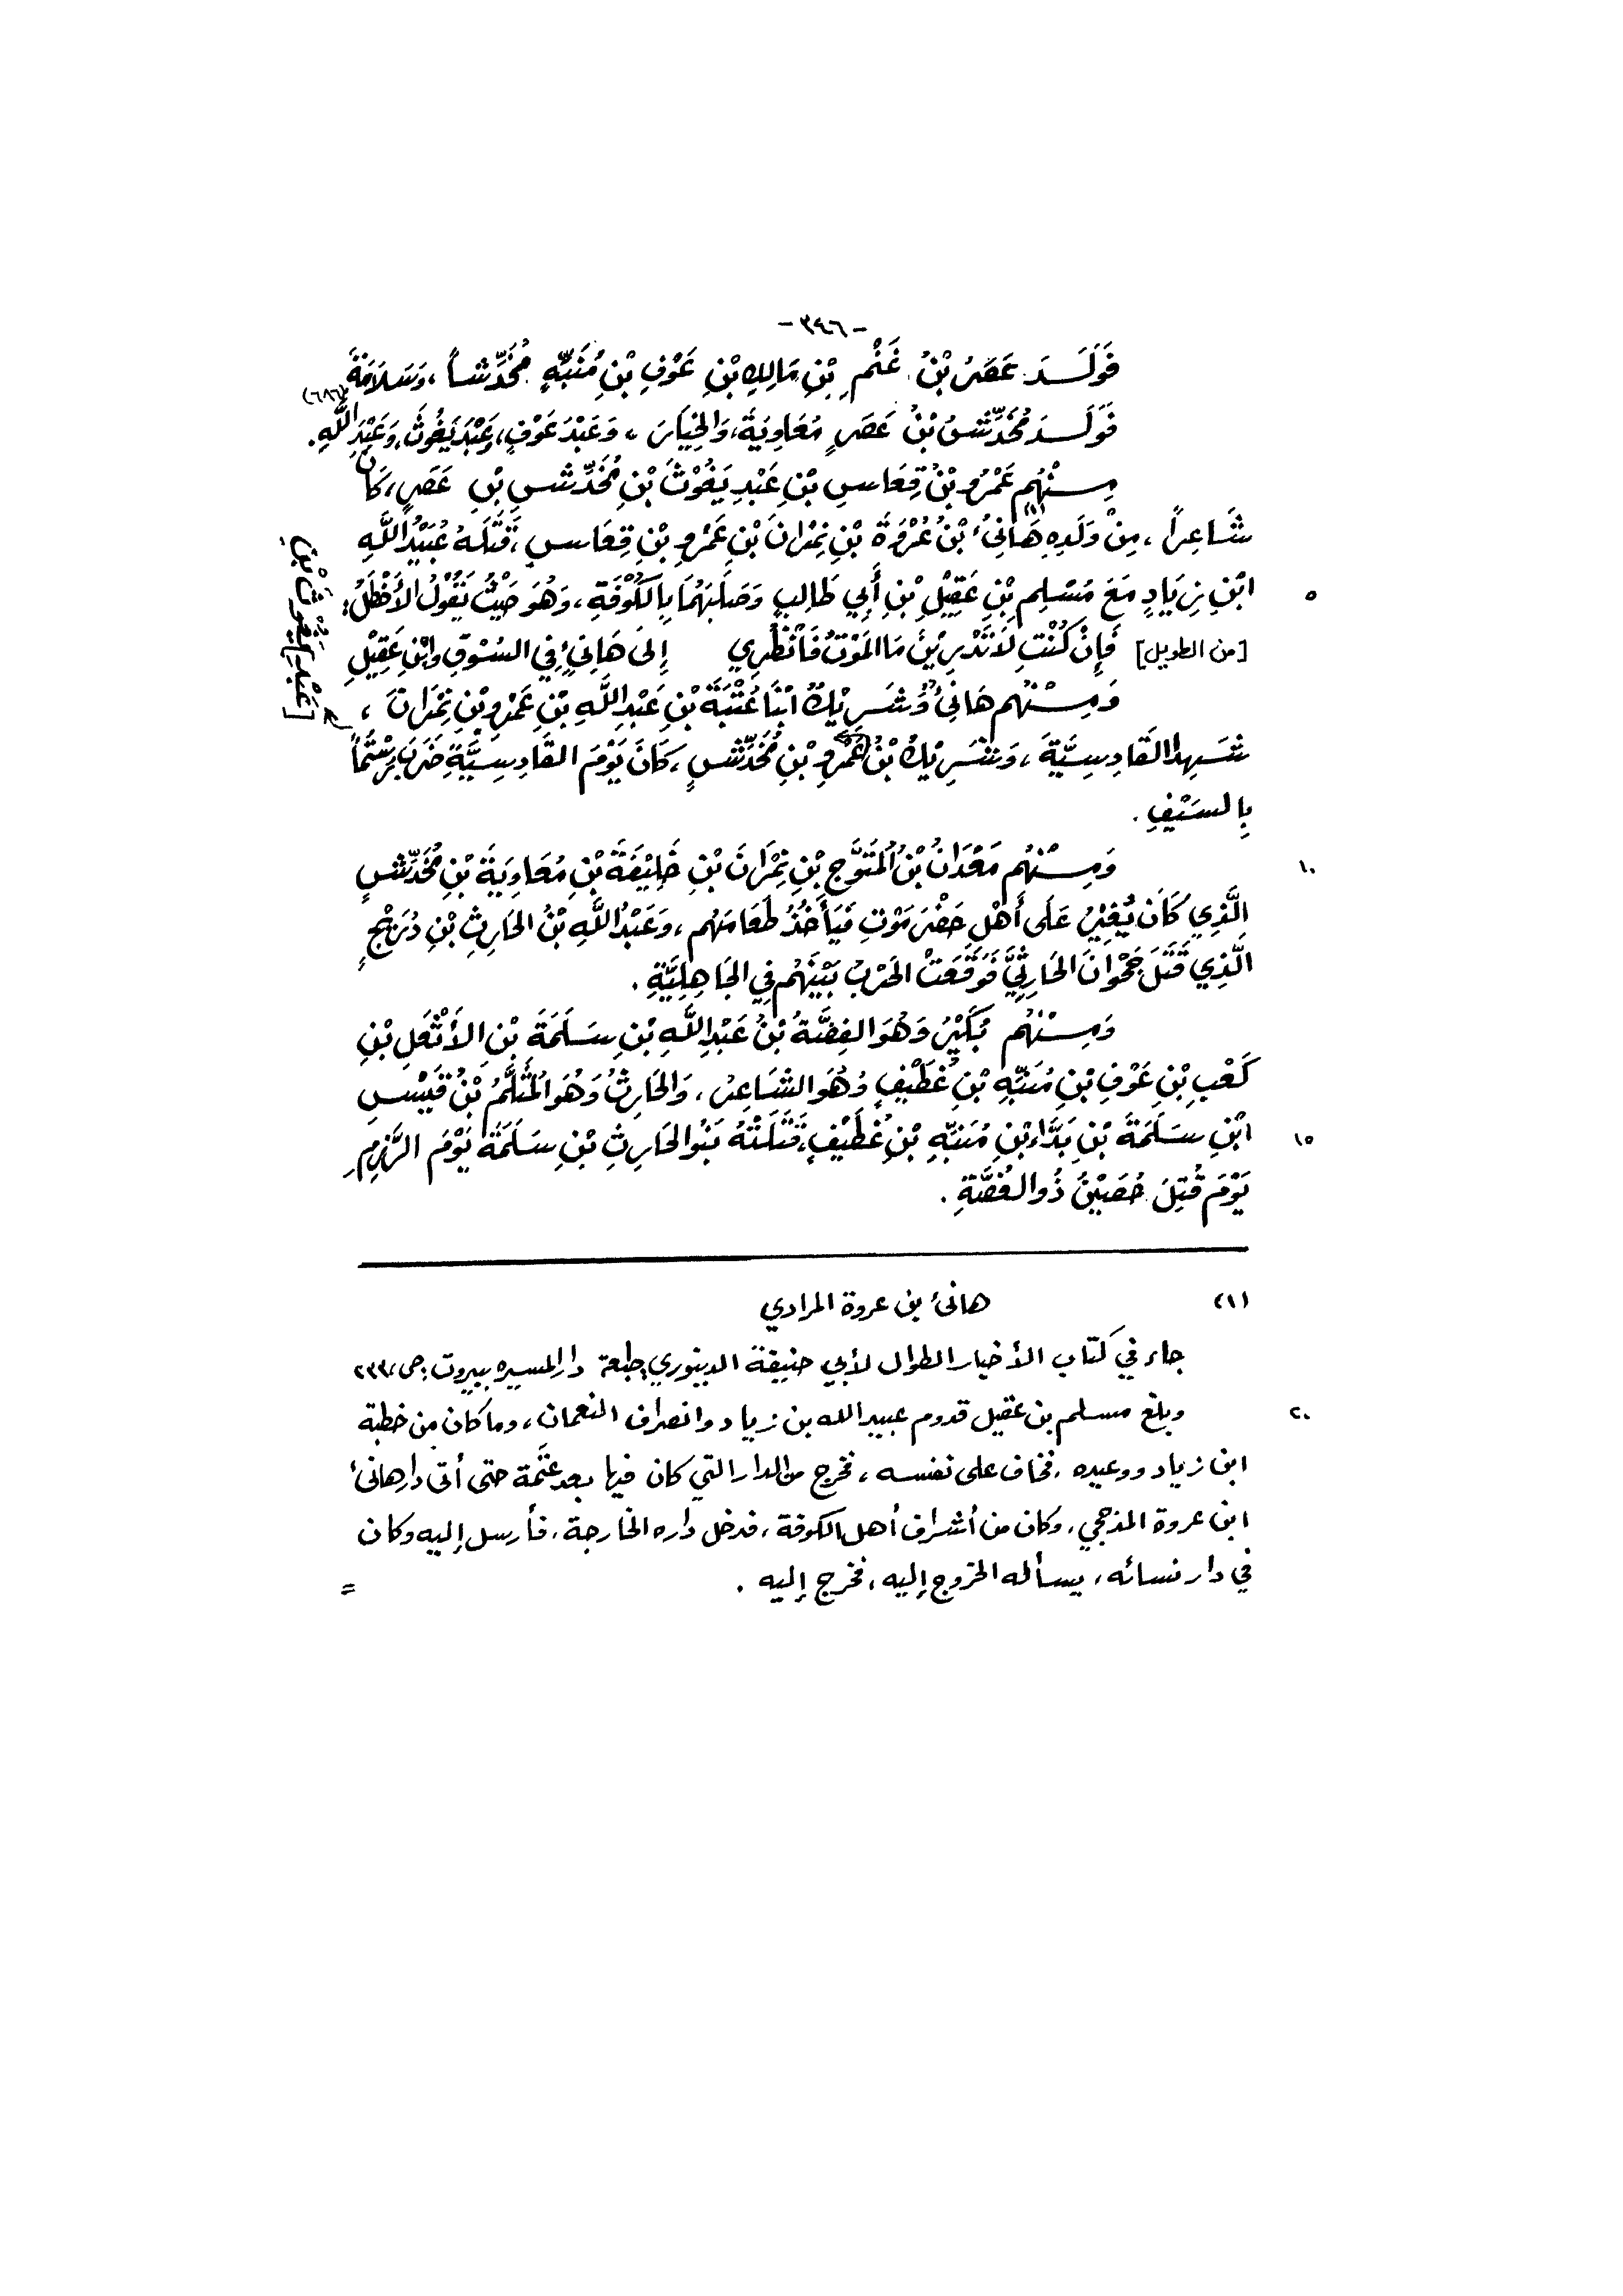 -٣٤٦-
فَوَلَدَ عَصَرُ بْنُ غَنْمِ بْنِ مَالِكِ بْنِ عَوْفِ بْنِ مُنَبِّهٍ مُخَدِّشاً، وَسَلاَمَةَ (٦٨٦)
فَوَلَدَ مُخَدِّشُ بْنُ عَصَرٍ مُعَاوِيَةَ، وَالخِيَارَ، وَعَبْدَ عَوْفٍ، وَعَبْدَ يَغُوثَ، وَعَبْدَ اللَّهِ.
مِنْهُم عَمْرُو بْنُ قِعَاسِ بْنِ عَبْدِ يَغُوْثَ بْنِ مُخَدِّشِ بْنِ عَصَرٍ، كَانَ
شَاعِراً، مِنْ وَلَدِهِ هَانِئُ (١) بْنُ عُرْوَةَ بْنِ نِمْرَانَ بْنِ عَمْرِو بْنِ قِعَاسٍ، قَتَلَهُ عُبَيْدُ اللَّهِ
٥ ابْنِ زِيَادٍ مَعَ مُسْلِمِ بْنِ عَقِيْلِ بْنِ أَبِي طَالِبٍ وَصَلَبَهُمَا بِالكُوْفَةِ، وَهُوَ حَيْثُ يَقُوْلُ الأَخْطَلُ:
[من الطويل] فَإِنْ كُنْتِ لاَ تَدْرِيْنَ مَا المَوْتُ فَانْظُرِي إِلَى هَانِئٍ فِي السُّوْقِ وابْنِ عَقِيْلِ
وَمِنْهُم هَانِئٌ وَشَرِيْكٌ ابْنَا عُتْبَةَ بْنِ عَبْدِ اللَّهِ بْنِ عَمْرِو بْنِ نِمْرَانَ،
شَهِدَا القَادِسِيَّةَ، وَشَرِيْكُ بْنُ عَمْرِو بْنِ مُخَدِّشٍ، كَانَ يَوْمَ القَادِسِيَّةِ ضَرَبَ رُسْتُماً
[عَبْدِ يَغُوْثَ بْنِ
بِالسَّيْفِ.
١٠ وَمِنْهُم مَعْدَانُ بْنُ المُتَوَّجِ بْنِ نِمْرَانَ بْنِ خَلِيْفَةَ بْنِ مُعَاوِيَةَ بْنِ مُخَدِّشٍ
الَّذِي كَانَ يُغِيْرُ عَلَى أَهْلِ حَضْرَمَوْتِ فَيَأخُذُ طَعَامَهُم، وَعَبْدُ اللَّهِ بْنُ الحَارِثِ بْنِ دُرَيْجٍ
الَّذِي قَتَلَ جَحْوَانَ الحَارِثِيَّ فَوَقَعَتْ الحَرْبُ بَيْنَهُم فِي الجَاهِلِيَّةِ.
وَمِنْهُم بُكَيْرُ وَهُوَ الفِضَّةُ بْنُ عَبْدِ اللَّهِ بْنِ سَلَمَةَ بْنِ الأَثْعَلِ بْنِ
كَعْبِ بْنِ عَوْفِ بْنِ مُنَبِّهِ بْنِ غُطَيْفٍ وَهُوَ الشَّاعِرُ، وَالحَارِثُ وَهُوَ المُثَلَّمُ بْنُ قَيْسِ
١٥ ابْنِ سَلَمَةَ بْنِ بَدَّاءَ بْنِ مُنَبِّهِ بْنِ غُطَيْفٍ، قَتَلَتْهُ بَنُو الحَارِثِ بْنِ سَلَمَةَ يَوْمَ الرَّزْمِ
يَوْمَ قُتِلَ حُصَيْنُ ذُو الغُصَّةِ.
(١) هانئ بن عروة المرادي
جاء في كتاب الأخبار الطوال لأبي حنيفة الدينوري طبعة دار المسيرة بيروت، ص، ٢٣٣
٢٠ وبلغ مسلم بن عقيل قدوم عبيد الله بن زياد وانصراف النعمان، وما كان من خطبة
ابن زياد ووعيده، فخاف على نفسه، فخرج من الدار التي كان فيها بعد عتَمة حتى أتى دار هانئ
ابن عروة المذحجي، وكان من أشراف أهل الكوفة، فدخل داره الخارجة، فأرسل إليه وكان
في دار نسائه، يسأله الخروج إليه، فخرج إليه. =